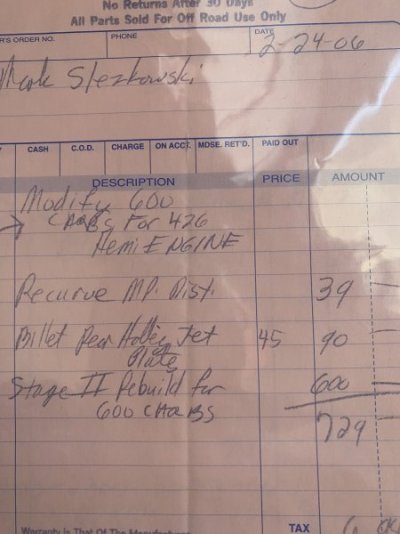 No Returns After 30 Days
All Parts Sold For Off Road Use Only
R'S ORDER NO. PHONE DATE
2-24-06
Mark Sleszkowski
CASH C.O.D. CHARGE ON ACCT. MDSE. RET'D. PAID OUT
DESCRIPTION PRICE AMOUNT
Modify 600
CARBS For 426
Hemi ENGINE
Recurve MP. Dist. 39 —
Billet Rear Holley Jet 45 90 —
Plate
Stage II Rebuild for 600 —
600 CARBS
729
Warranty is That Of The Manufacturer
TAX